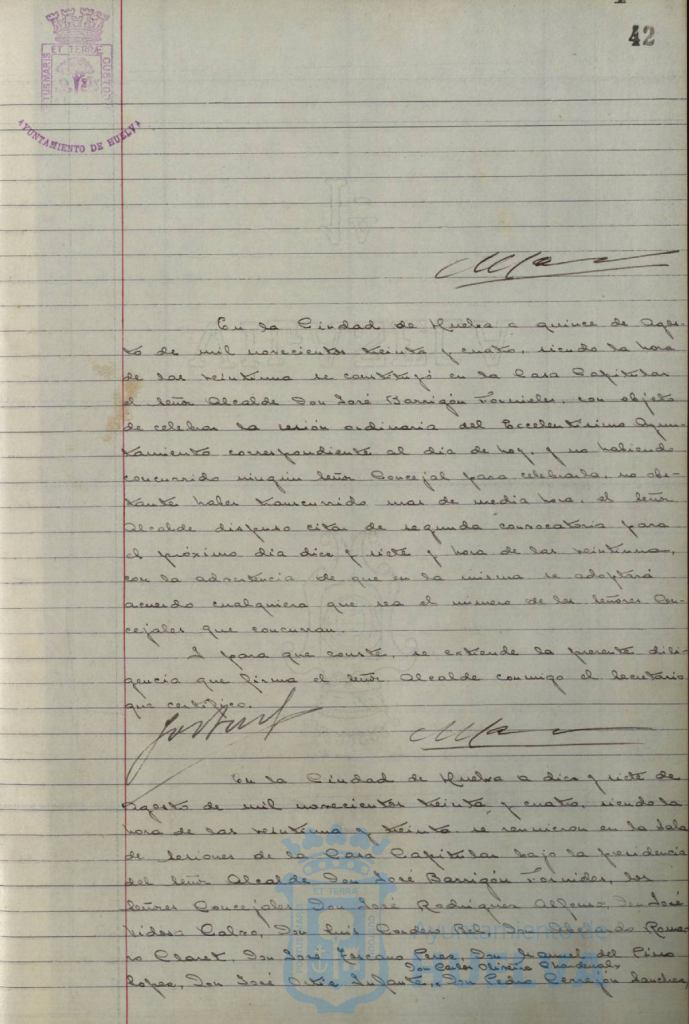 42
PORTUS MARIS ET TERRÆ CUSTODIA
AYUNTAMIENTO DE HUELVA
En la Ciudad de Huelva a quince de Agos-
to de mil novecientos treinta y cuatro, siendo la hora
de las veintiuna se constituyó en la Casa Capitular
el señor Alcalde Don José Barrigón Fornieles, con objeto
de celebrar la sesión ordinaria del Excelentísimo Ayun-
tamiento correspondiente al día de hoy, y no habiendo
concurrido ningún señor Concejal para celebrarla, no obs-
tante haber transcurrido mas de media hora, el señor
Alcalde dispuso citar de segunda convocatoria para
el próximo día diez y siete y hora de las veintiuna,
con la advertencia de que en la misma se adoptará
acuerdo cualquiera que sea el número de los señores Con-
cejales que concurran.
Y para que conste, se extiende la presente dili-
gencia que firma el señor Alcalde conmigo el Secretario
que certifico.
En la Ciudad de Huelva a diez y siete de
Agosto de mil novecientos treinta y cuatro, siendo la
hora de las veintiuna y treinta se reunieron en la Sala
de Sesiones de la Casa Capitular bajo la presidencia
del señor Alcalde Don José Barrigón Fornieles, los
señores Concejales Don José Rodríguez Alfonso, Don José
Calvo, Don Luis Cordero Bel, Don Abelardo Rome-
ro Claret, Don José Toscano Perez, Don Manuel del Pino
Don Carlos Oliveira Chardenal
Lopez, Don José Ortiz Infante, Don Pedro Cerrejón Sanchez,